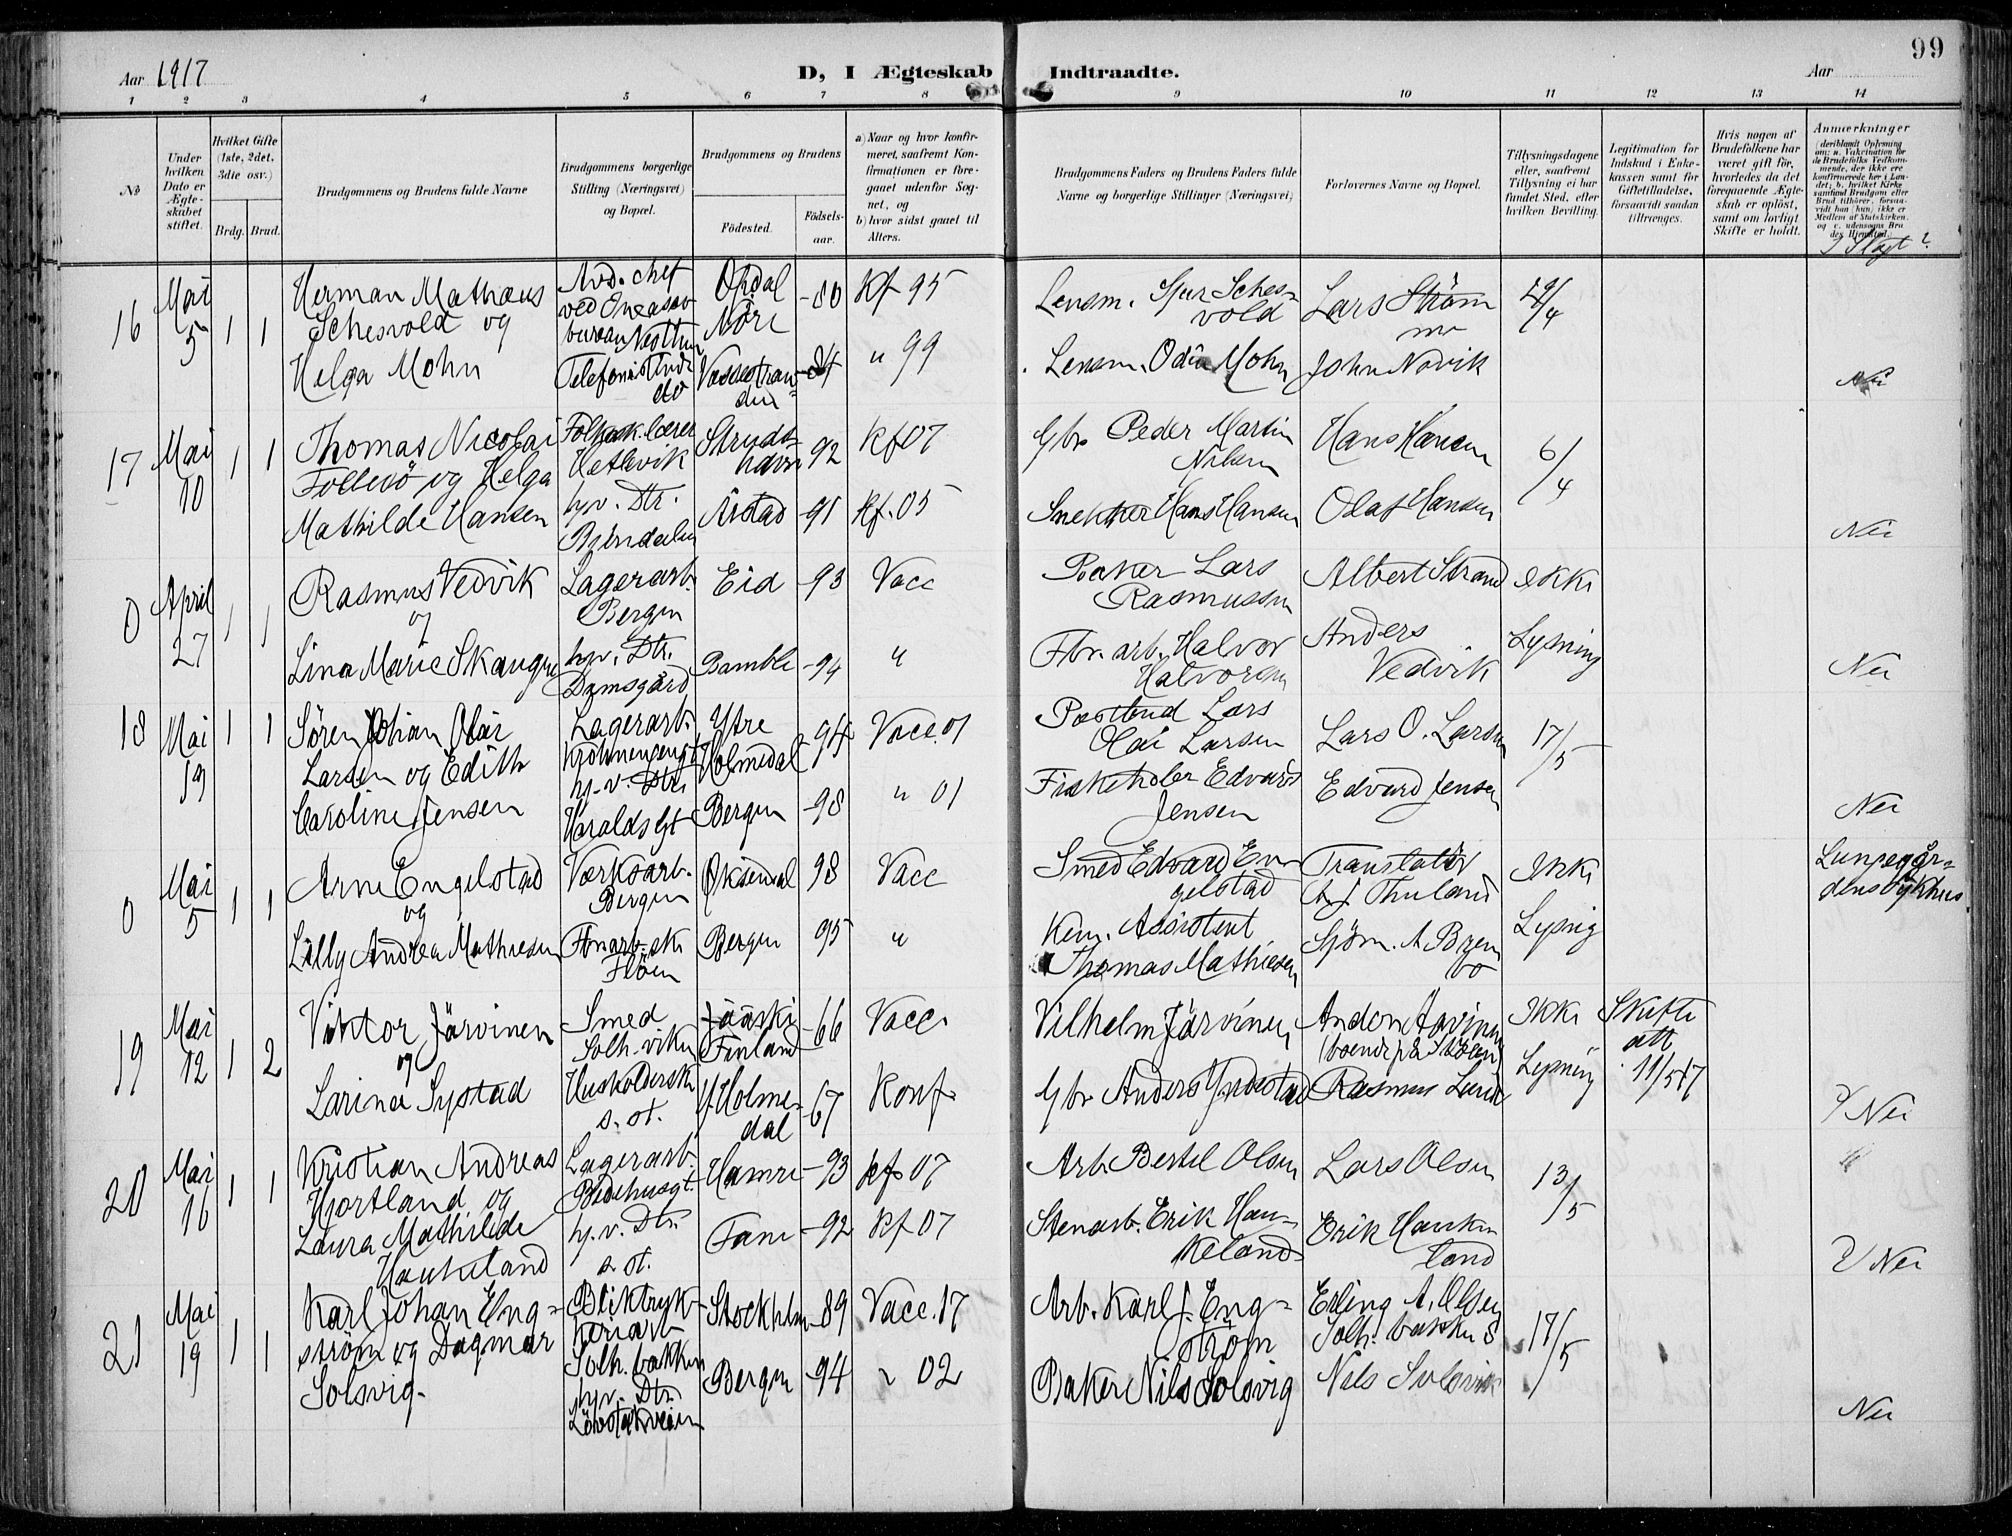 99
Aar 1917
D, I Ægteskab Indtraadte.
Aar
1 2 3 4 5 6 7 8 9 10 11 12 13 14
No
Under hvilken Dato er Ægteskabet stiftet.
Hvilket Gifte (1ste, 2det, 3die osv.)
Brdg. Brud.
Brudgommens og Brudens fulde Navne
Brudgommens borgerlige Stilling (Næringsvei) og Bopæl.
Brudgommens og Brudens
Födested. Födselsaar.
a) Naar og hvor konfirmeret, saafremt Konfirmationen er foregaaet udenfor Sognet, og
b) hvor sidst gaaet til Alters.
Brudgommens Faders og Brudens Faders fulde Navne og borgerlige Stillinger (Næringsvei)
Forlovernes Navne og Bopæl.
Tillysningsdagene eller, saafremt Tillysning ei har fundet Sted, efter hvilken Bevilling.
Legitimation for Indskud i Enkekassen samt for Giftetilladelse, forsaavidt saadan tiltrænges.
Hvis nogen af Brudefolkene har været gift før, hvorledes da det foregaaende Ægteskab er oplöst, samt om lovligt Skifte er holdt.
Anmærkninger
(deriblandt Oplysning om: a. Vakcination for de Brudefolks Vedkommende, der ikke ere konfirmerede her i Landet; b. hvilket Kirkesamfund Brudgom eller Brud tilhörer, forsaavidt han (hun) ikke er Medlem af Statskirken, og c. udensogns Brudes Hjemsted.)
I Slegt?
16 Mai 5 1 1
Herman Mathæus
Schesvold og
Helga Mohn
Avd. chef
Telefonistinde
do
Opdal
Nöre
-80 Kf 95
Vossestranden
-84 " 99
Lensm. Schesvold
Lensm. Odin Mohn
Lars Strømme
John Novik
29/4
Nei
17 Mai 10 1 1
Thomas Nicolai
Follesö og Helga
Mathilde Hansen
Folkesk. lærer
Hetlevik
hjv. Dtr.
92 Kf 07
Årstad -91 Kf. 05
Gbr Peder Martin
Nilsen
Snekker Hans Hansen
Hans Hansen
Olaf Hansen
6/4
Nei
0 April 27 1 1
Rasmus Vedvik
og
Lina Marie Skaugen
Lagerarb.
Bergen
hjv. Dtr.
Damsgård
Eid -93 Vacc
Bamble -94 "
Baker Lars
Rasmussen
Fbr. arb. Halvor
Halvorsen
Albert Strand
Anders
Vedvik
Ikke
Lysning
Nei
18 Mai 19 1 1
Sören Johan Olai
Larsen og Edith
Caroline Jensen
Lagerarb.
hj.v. Dtr.
Haralds Gt
Ytre
Holmedal
-94 Vacc. 01
Bergen -98 " 01
Postbud Lars
Olai Larsen
Fiskehdler Edvard
Jensen
Lars O. Larsen
Edvard Jensen
17/5
Nei
0 Mai 5 1 1
Arne Engelstad
og
Lilly Andrea Mathiesen
Værksarb.
Bergen
Flöen
98 Vacc
Bergen 95 "
Smed Edvard Engelstad
Kem. Assistent
Thomas Mathiesen
Translatör
A J Thuland
Sjöm. A
Ikke
Lysnig
Lungegårdens sykhus.
19 Mai 12 1 2
Viktor Järvinen
og
Larina Systad
Smed
Solh. viken
Husholderske
s. st.
Jääski
Finland
-66 Vacc.
Y. Holmedal
-67 Konf.
Vilhelm Järvinen
Gbr Anders Yndestad
(boende på Skolen)
Rasmus Lund
Ikke
Lysning
Skifte
att
11/5 17
Nei
20 Mai 16 1 1
Kristian Andreas
Hjortland og
Laura Mathilde
Haukeland
Lagerarb.
Bedehusgt.
hj.v. Dtr.
s. st.
Hamre -93 kf 07
Fane -92 Kf 07
Arb. Bertel Olsen
Stenarb. Erik Haukeland
Lars Olsen
Erik Haukeland
13/5
Nei
21 Mai 19 1 1
Karl Johan Engström og Dagmar
Solsvig.
Bliktrykkeriarb
Solh. bakken
hjv. Dtr.
Lövstakveien
Stockholm -89 Vacc. 17
Bergen -94 " 02
Arb. Karl J. Engström
Baker Nils Solsvig
Erling A. Olsen
Solh. bakken 8
Nils Solsvik
17/5
Nei